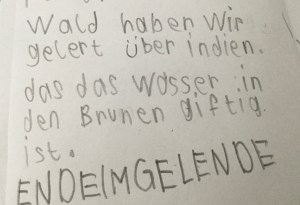 Wald haben Wir
gelert über indien.
das das Wasser in
den Brunen giftig
ist.
ENDEIMGELENDE